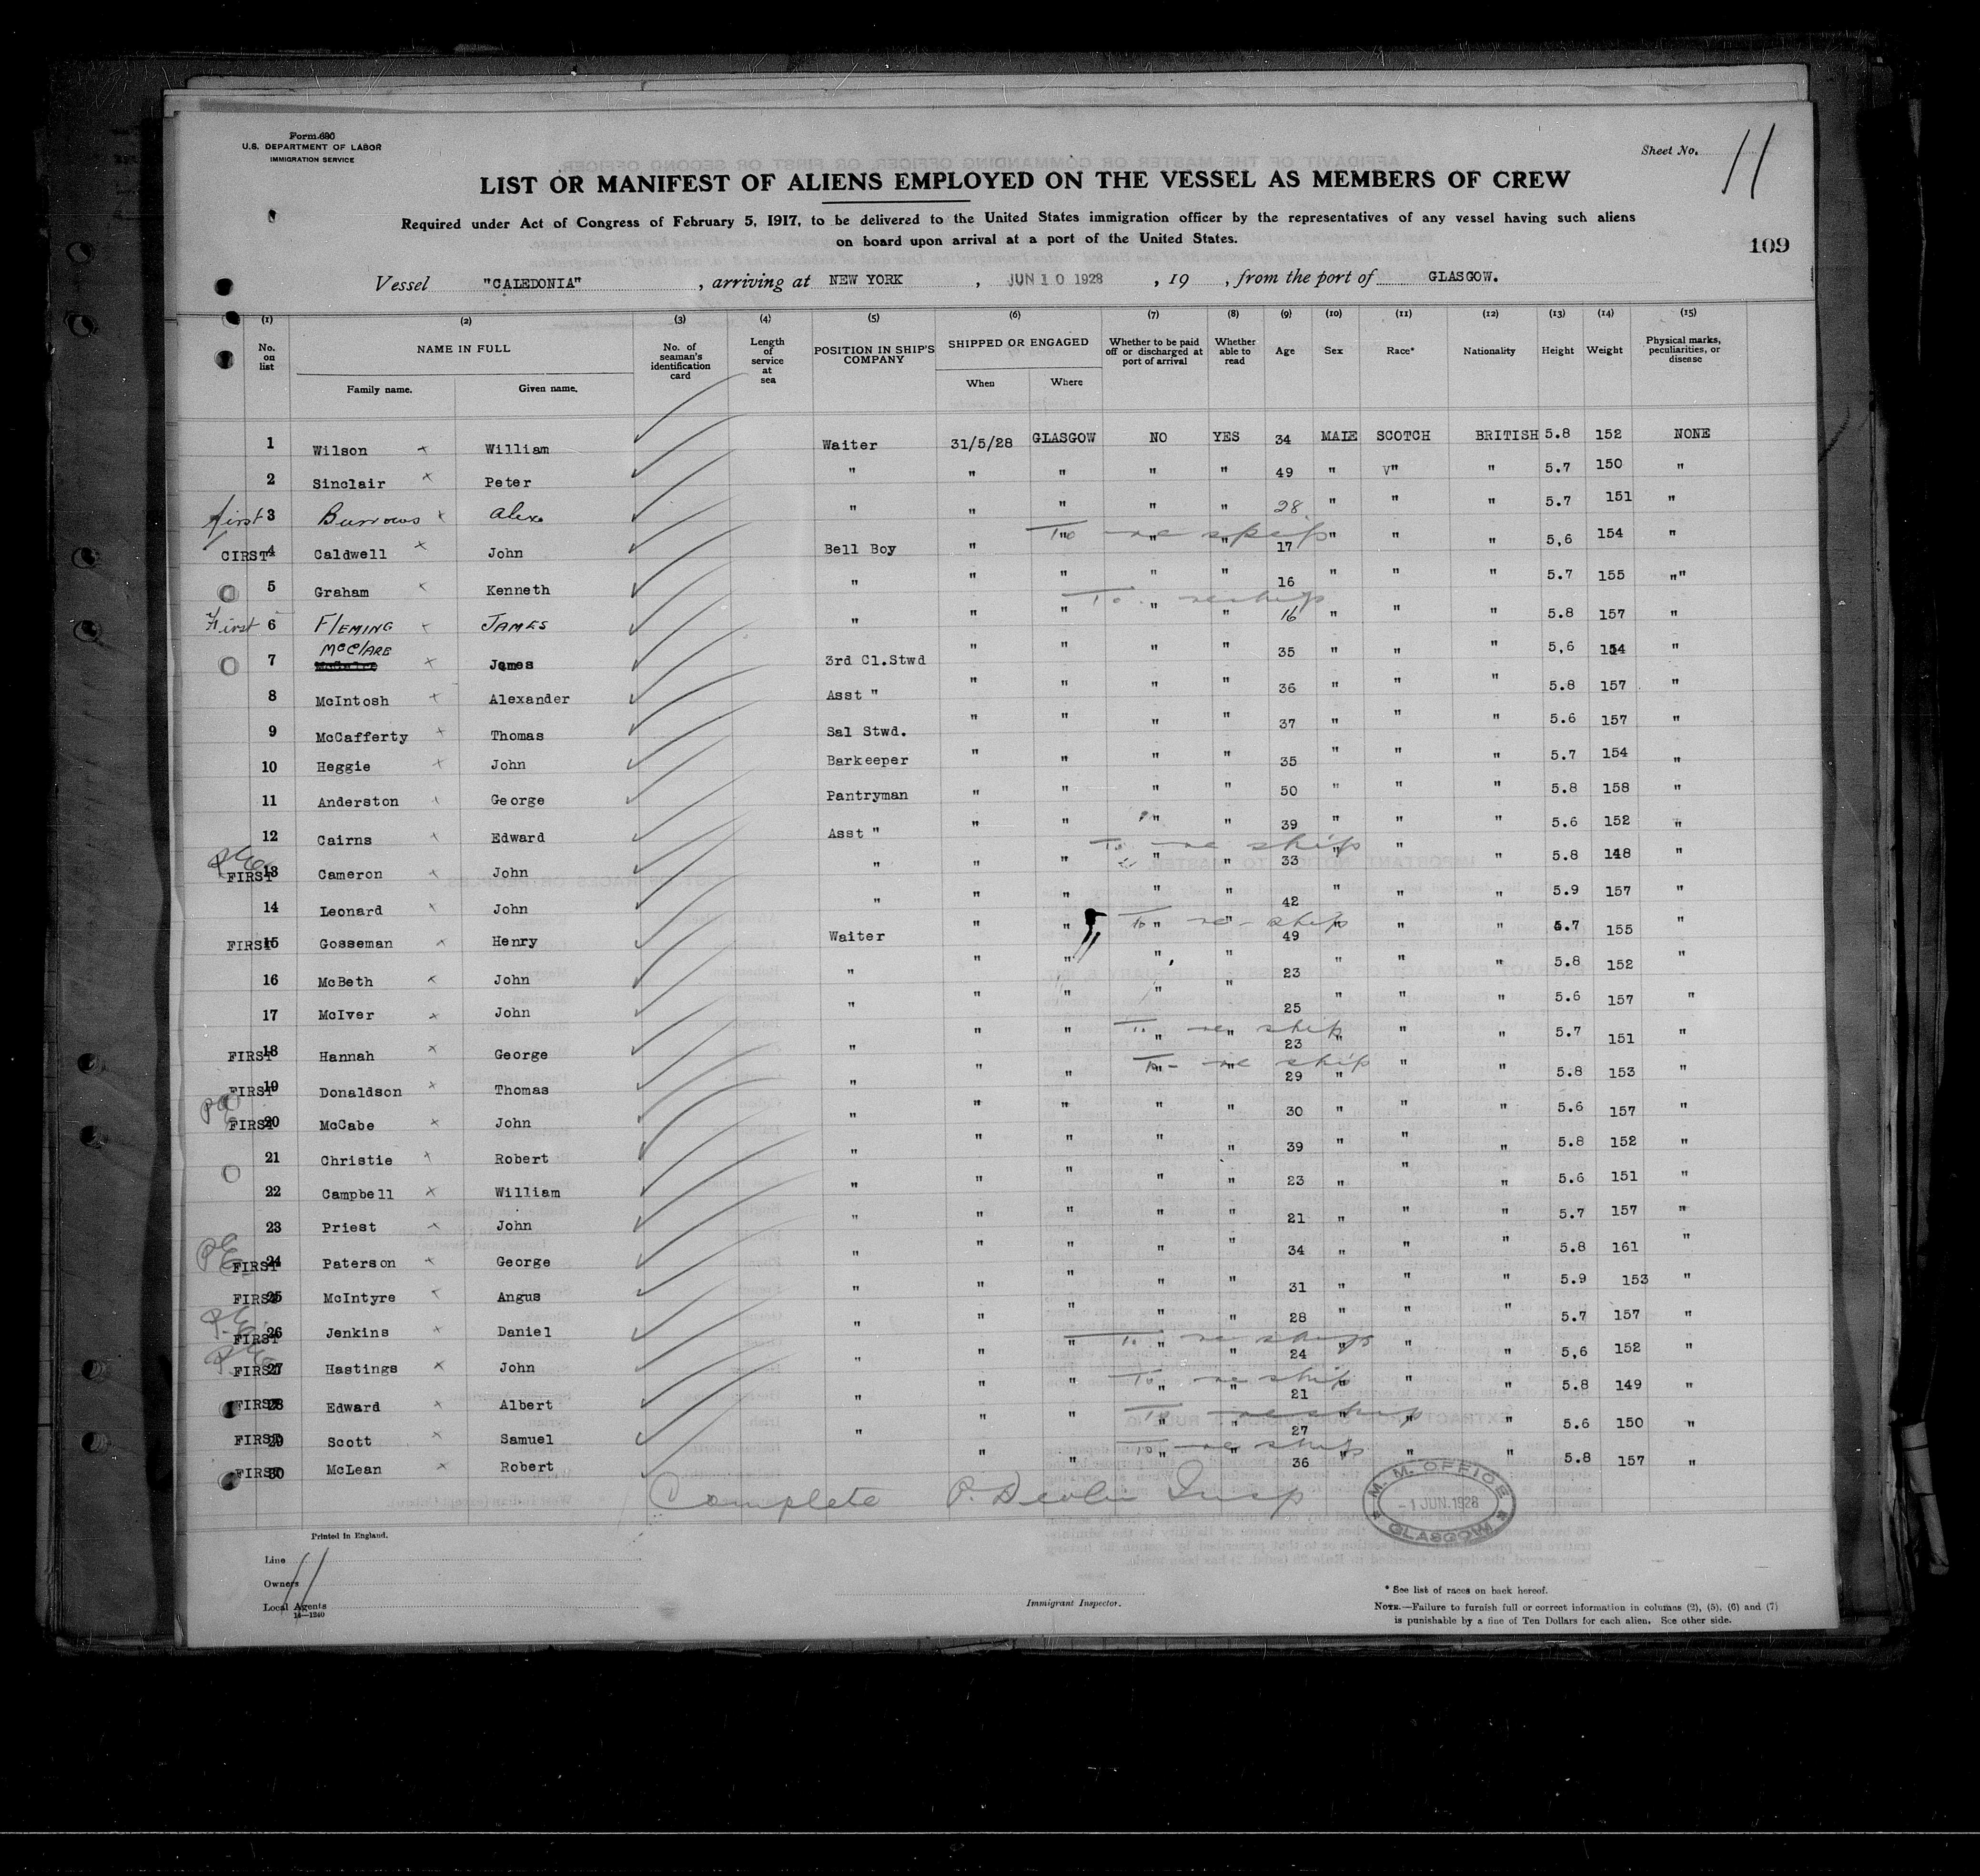 Form 680
U.S. DEPARTMENT OF LABOR
IMMIGRATION SERVICE
Sheet No. 11
LIST OR MANIFEST OF ALIENS EMPLOYED ON THE VESSEL AS MEMBERS OF CREW
Required under Act of Congress of February 5, 1917, to be delivered to the United States immigration officer by the representatives of any vessel having such aliens
on board upon arrival at a port of the United States.
109
Vessel "CALEDONIA", arriving at NEW YORK, JUN 10 1928, 19 , from the port of GLASGOW.
(1) (2) (3) (4) (5) (6) (7) (8) (9) (10) (11) (12) (13) (14) (15)
No. on list NAME IN FULL Family name. Given name. No. of seaman's identification card Length of service at sea POSITION IN SHIP'S COMPANY SHIPPED OR ENGAGED When Where Whether to be paid off or discharged at port of arrival Whether able to read Age Sex Race* Nationality Height Weight Physical marks, peculiarities, or disease
1 Wilson x William Waiter 31/5/28 GLASGOW NO YES 34 MALE SCOTCH BRITISH 5.8 152 NONE
2 Sinclair x Peter " " " " " 49 " " " 5.7 150 "
first 3 Burrows x Alex. " " " " " 28 " " " 5.7 151 "
CIRST 4 Caldwell x John Bell Boy " " " " 17 " " " 5,6 154 " To re ship
5 Graham x Kenneth " " " " " 16 " " " 5.7 155 ""
First 6 FLEMING x JAMES " " " " " 16 " " " 5.8 157 " To reship
7 McClare x James 3rd Cl.Stwd " " " " 35 " " " 5,6 154 "
8 McIntosh x Alexander Asst " " " " " 36 " " " 5.8 157 "
9 McCafferty x Thomas Sal Stwd. " " " " 37 " " " 5.6 157 "
10 Heggie x John Barkeeper " " " " 35 " " " 5.7 154 "
11 Anderston x George Pantryman " " " " 50 " " " 5.8 158 "
12 Cairns x Edward Asst " " " " " 39 " " " 5.6 152 "
FIRST 13 Cameron x John " " " " " 33 " " " 5.8 148 " To re ship
14 Leonard x John " " " " " 42 " " " 5.9 157 "
FIRST 15 Gosseman x Henry Waiter " " " " 49 " " " 5.7 155 " To re-ship
16 McBeth x John " " " " " 23 " " " 5.8 152 "
17 McIver x John " " " " " 25 " " " 5.6 157 "
FIRST 18 Hannah x George " " " " " 23 " " " 5.7 151 " To re ship
FIRST 19 Donaldson x Thomas " " " " " 29 " " " 5.8 153 " To re ship
FIRST 20 McCabe x John " " " " " 30 " " " 5.6 157 "
21 Christie x Robert " " " " " 39 " " " 5.8 152 "
22 Campbell x William " " " " " 23 " " " 5.6 151 "
23 Priest x John " " " " " 21 " " " 5.7 157 "
FIRST 24 Paterson x George " " " " " 34 " " " 5.8 161 "
FIRST 25 McIntyre x Angus " " " " " 31 " " " 5.9 153 "
FIRST 26 Jenkins x Daniel " " " " " 28 " " " 5.7 157 "
FIRST 27 Hastings x John " " " " " 24 " " " 5,6 152 " To re ship
FIRST 28 Edward x Albert " " " " " 21 " " " 5.8 149 " To re ship
FIRST 29 Scott x Samuel " " " " " 27 " " " 5.6 150 " To reship
FIRST 30 McLean x Robert " " " " 36 " " " 5.8 157 " To re ship
Complete P. Devlin Insp
M. M. OFFICE
-1 JUN.1928
GLASGOW
Printed in England.
Line
Owners
Local Agents
11
14—1240
Immigrant Inspector.
* See list of races on back hereof.
NOTE.—Failure to furnish full or correct information in columns (2), (5), (6) and (7)
is punishable by a fine of Ten Dollars for each alien. See other side.